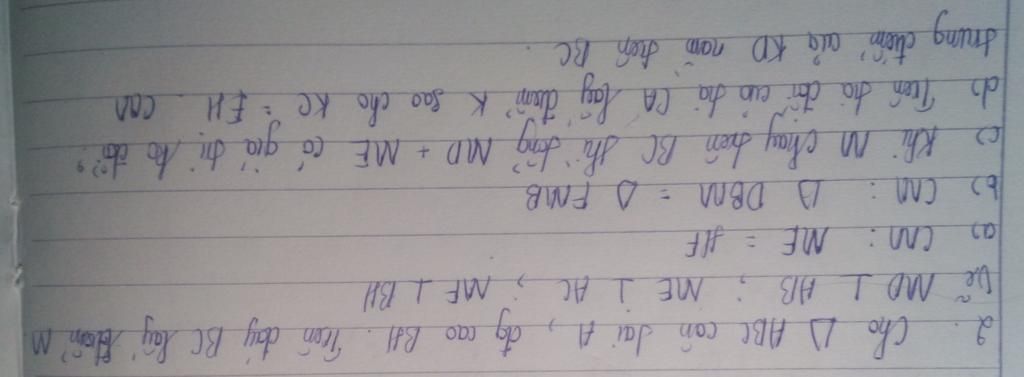 2. Cho Δ ABC cân tại A, đg cao BH. Trên đáy BC lấy điểm M
Vẽ MD ⊥ AB ; ME ⊥ AC ; MF ⊥ BH
a) CM: ME = HF
b) CM: Δ DBM = Δ FMB
c) Khi M chạy trên BC thì tổng MD + ME có giá trị ko đổi?
d) Trên tia đối của tia CA lấy điểm K sao cho KC = EH. CM
trung điểm của KD nằm trên BC.